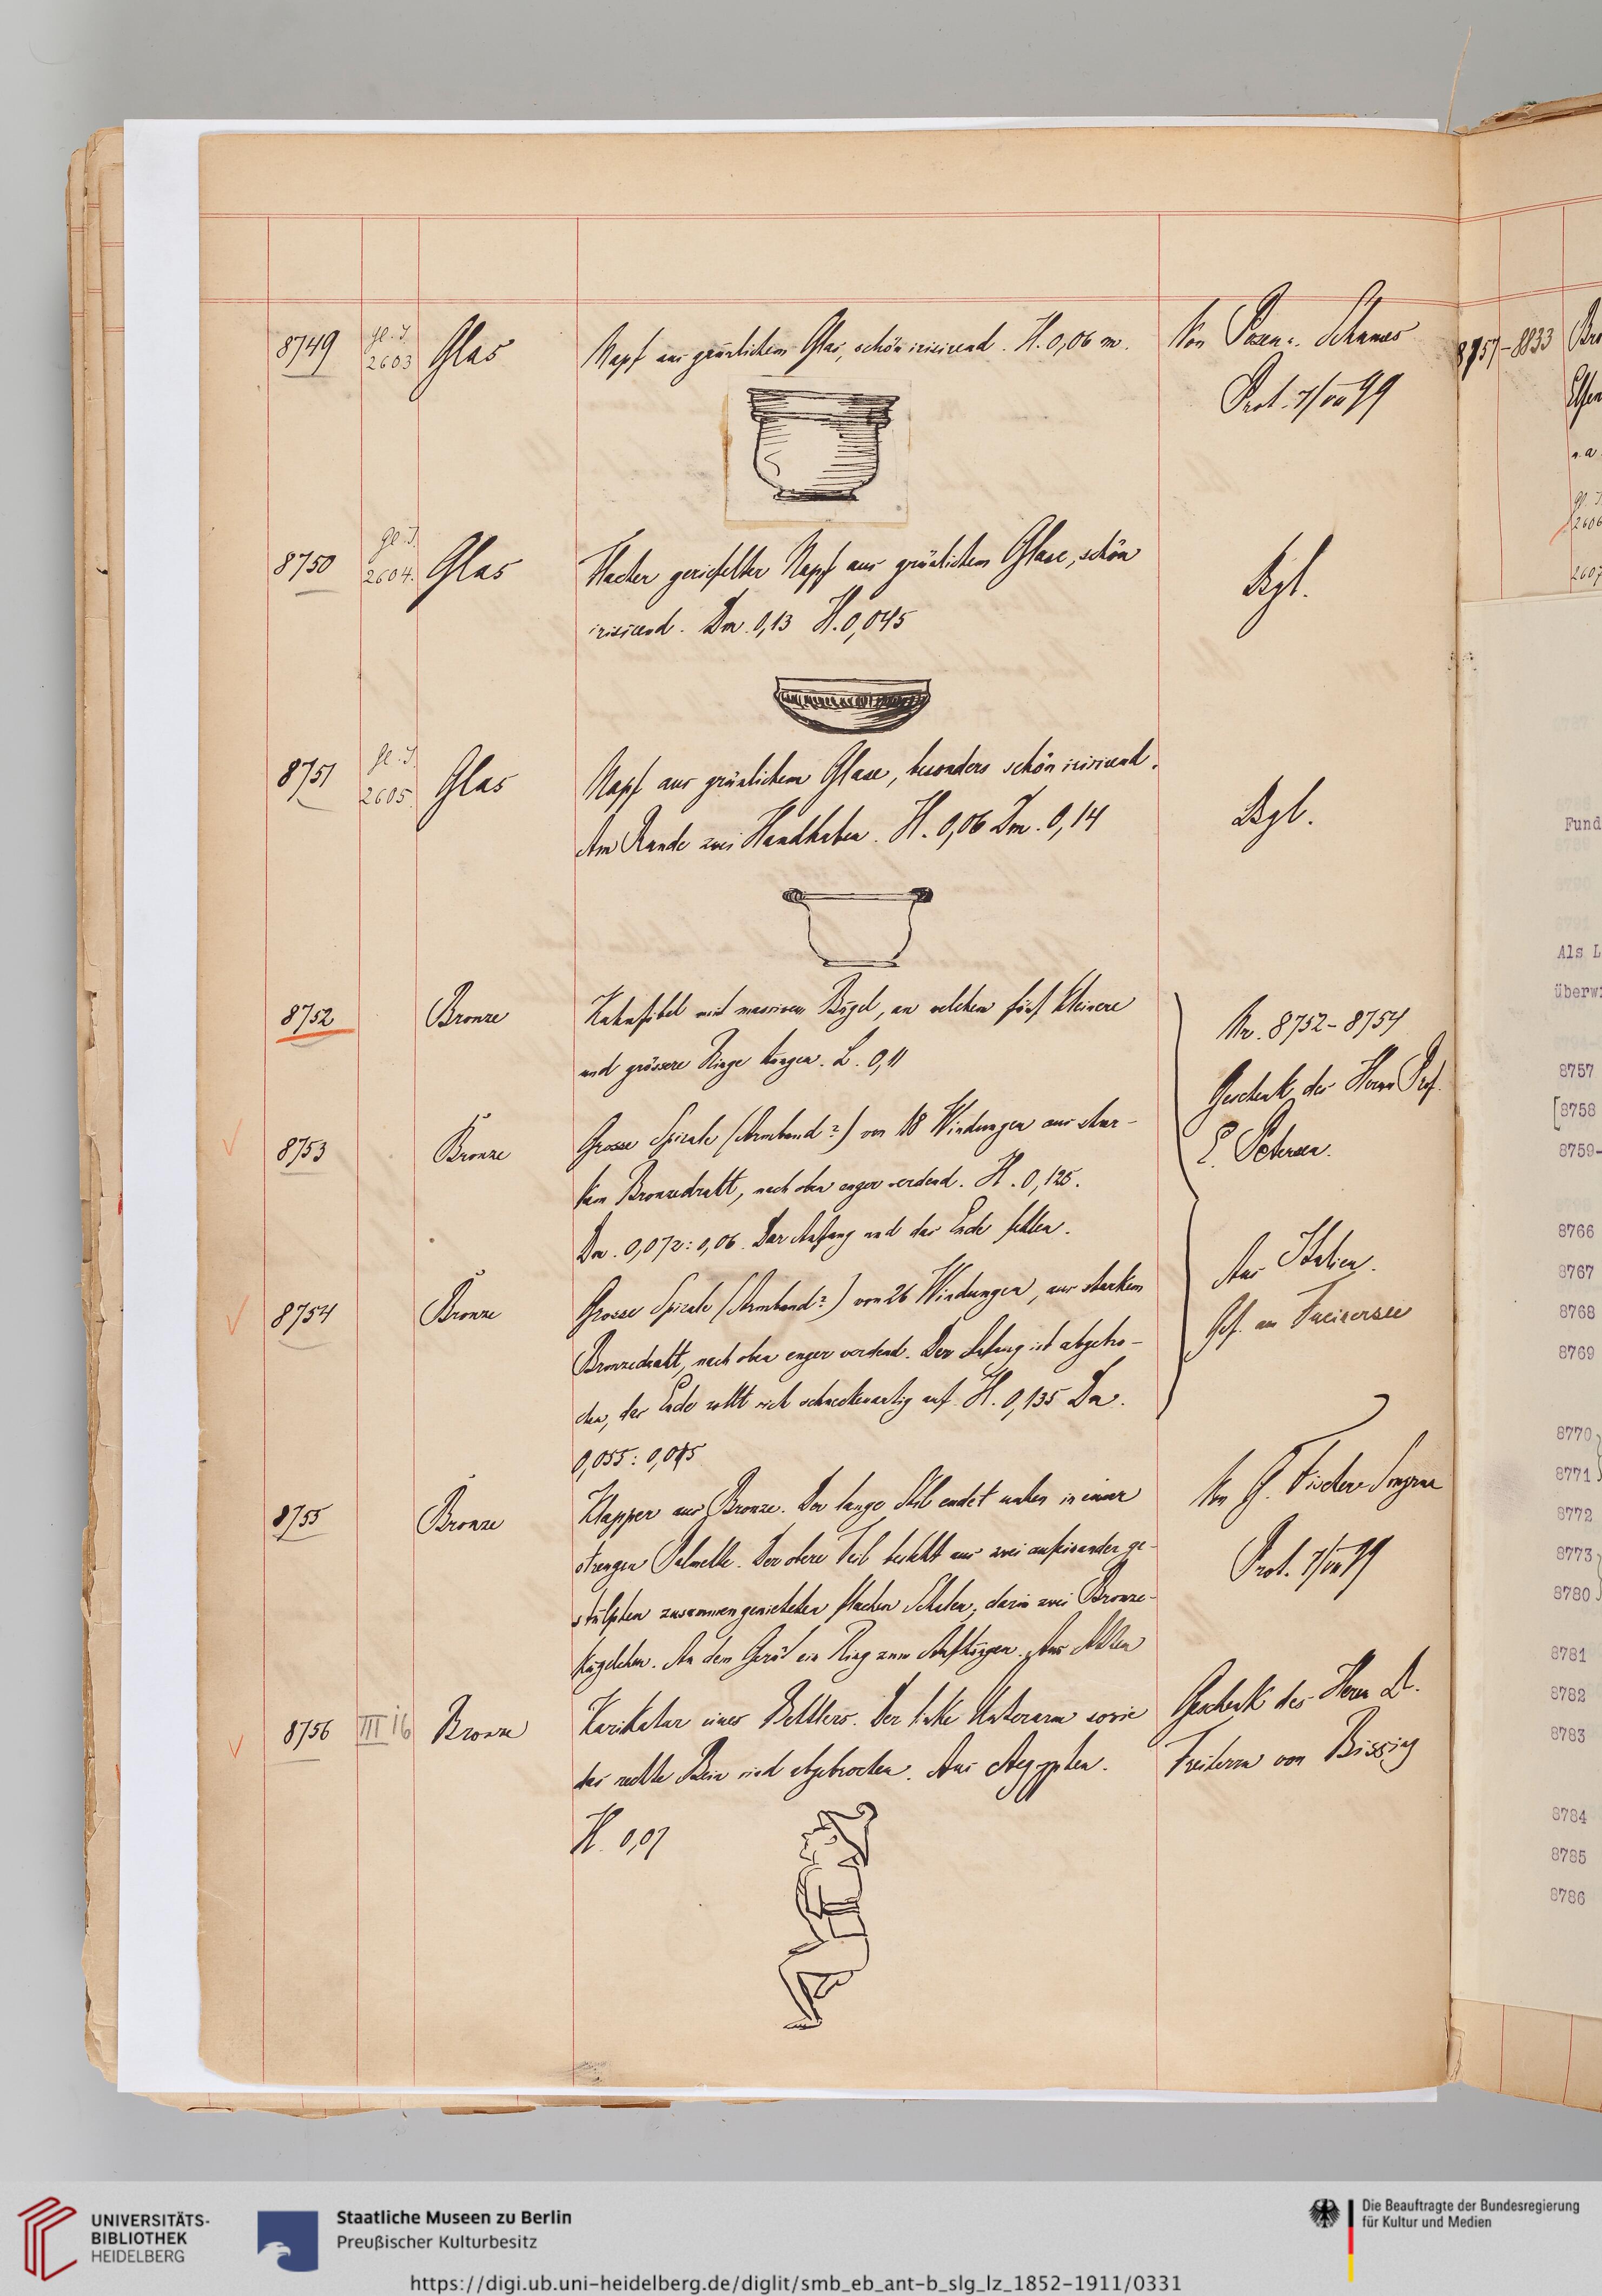 8749 Gl. I. 2603 Glas Napf aus grünlichem Glas, schön irisirend. H. 0,06 m. Von
Prot. 7/VII 99
8750 Gl. I. 2604. Glas Flacher geriefelter Napf aus grünlichem Glase, schön
irisirend. Dm. 0,13 H. 0,045
Dsgl.
8751 Gl. I. 2605. Glas Napf aus grünlichem Glase, besonders schön irisirend.
Am Rande zwei Handhaben. H. 0,06 Dm. 0,14
Dsgl.
8752 Bronze Kahnfibel mit massivem Bügel, an welchem fünf kleinere
und grössere Ringe hängen. L. 0,11
8753 Bronze Grosse Spirale (Armband?) von 18 Windungen aus star-
kem Bronzedraht, nach oben enger werdend. H. 0,125.
Dm. 0,072:0,06. Der Anfang und das Ende fehlen.
8754 Bronze Grosse Spirale (Armband?) von 26 Windungen, aus starkem
Bronzedraht, nach oben enger werdend. Der Anfang ist abgebro-
chen, das Ende rollt sich schneckenartig auf. H. 0,135 Dm.
0,055:0,045
Nr. 8752-8754
Geschenk des Herrn Prof.
E. Petersen.
Aus Italien.
Gef. am
8755 Bronze Klapper aus Bronze. Der lange Stiel endet unten in einer
strengen Palmette. Der obere Teil besteht aus zwei aufeinander ge-
stülpten zusammengenieteten flachen Schalen, darin zwei Bronze-
kügelchen. An dem Gerät ein Ring zum Aufhängen. Aus Athen
Von
Prot. 7/VII 99
8756 III 16 Bronze Karikatur eines Bettlers. Der linke Unterarm sowie
das rechte Bein sind abgebrochen. Aus Aegypten.
H. 0,07
Geschenk des Herrn Dr.
Freiherrn von Bissing
8757-8833
2606
2607
Fund
Als L
überw
8757
[8758
8759-
8766
8767
8768
8769
8770
8771
8772
8773
8780
8781
8782
8783
8784
8785
8786
UNIVERSITÄTS-
BIBLIOTHEK
HEIDELBERG
Staatliche Museen zu Berlin
Preußischer Kulturbesitz
Die Beauftragte der Bundesregierung
für Kultur und Medien
https://digi.ub.uni-heidelberg.de/diglit/smb_eb_ant-b_slg_lz_1852-1911/0331